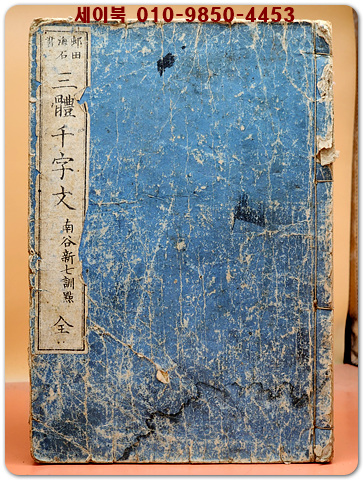 세이북 010-9850-4453
三體千字文
南谷新七訓點
全